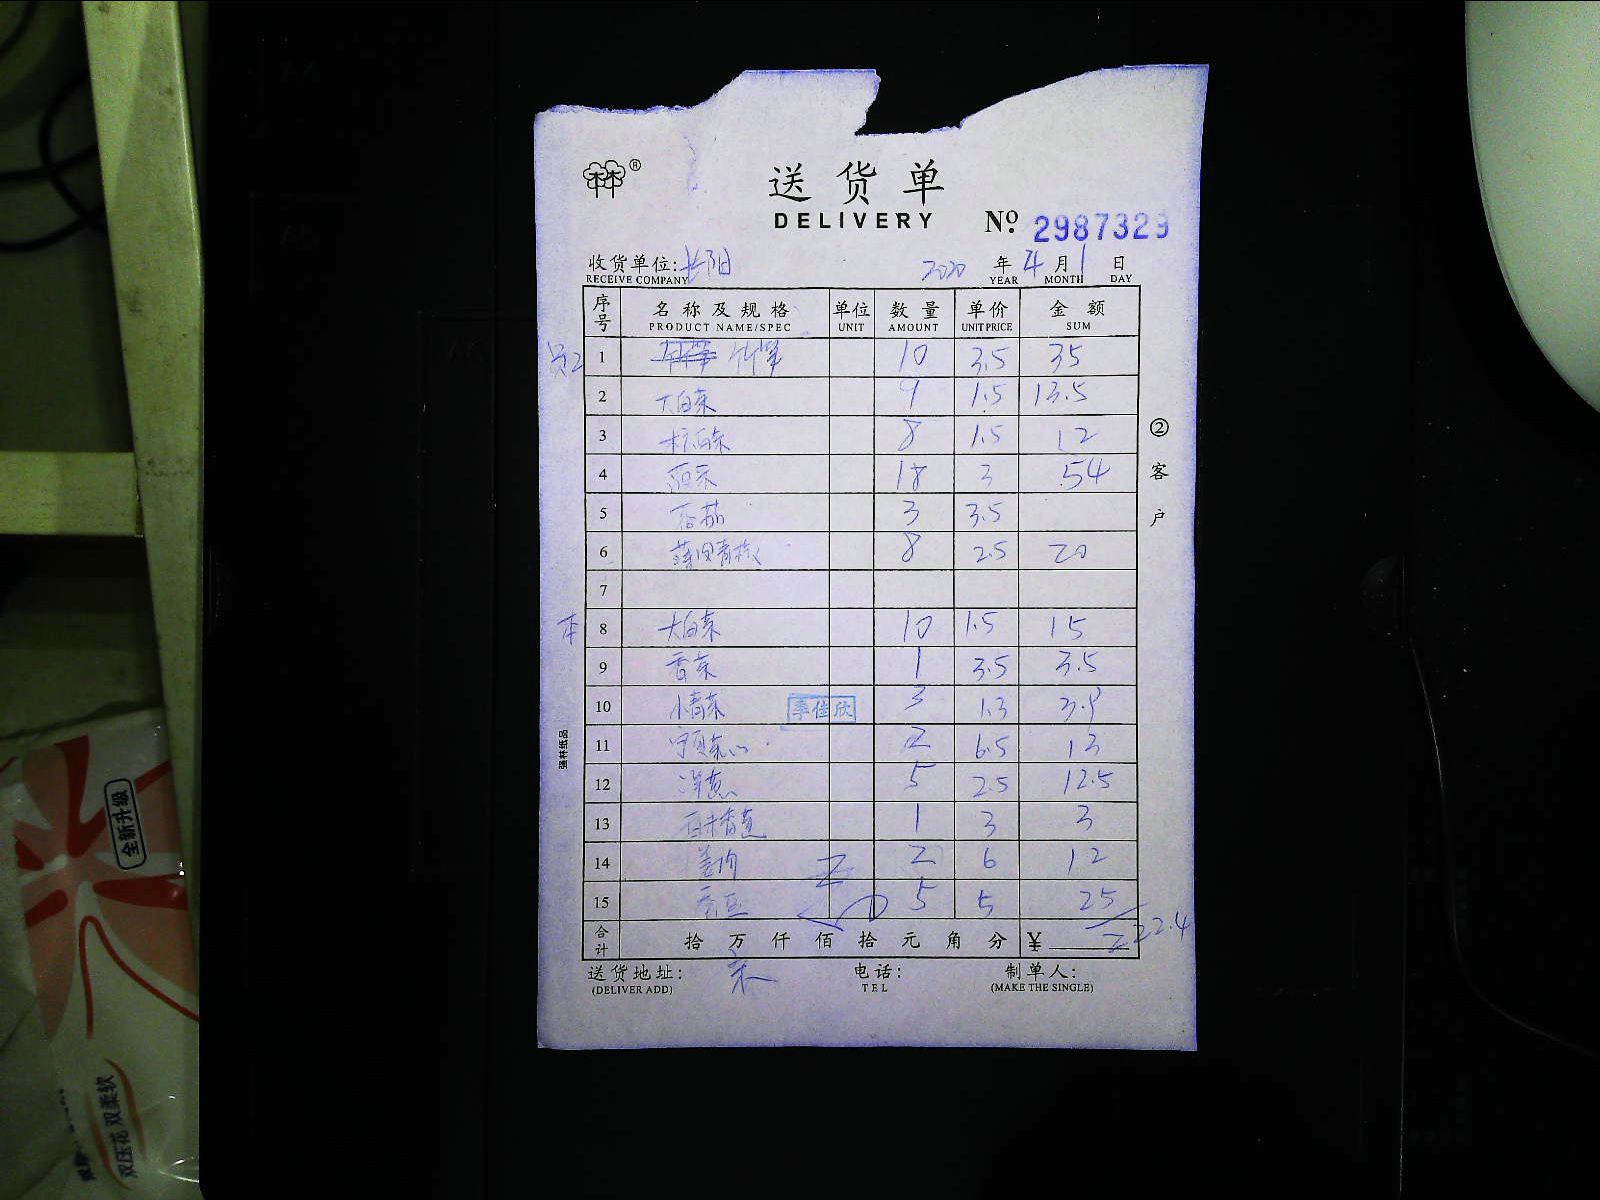 林林®
送货单
DELIVERY
No. 2987329
收货单位: 长阳 2020 年 4 月 1 日
RECEIVE COMPANY YEAR MONTH DAY
序号 名称及规格 单位 数量 单价 金额
PRODUCT NAME/SPEC UNIT AMOUNT UNIT PRICE SUM
1 竹笋 10 3.5 35
2 大白菜 9 1.5 13.5
3 8 1.5 12
4 菠菜 18 3 54
5 3 3.5
6 薄皮青椒 8 2.5 20
7
8 大白菜 10 1.5 15
9 香菜 1 3.5 3.5
10 小青菜 3 1.3 3.9
李佳欣
11 2 6.5 13
12 洋葱 5 2.5 12.5
13 1 3 3
14 差价 2 6 12
15 5 5 25
合计 拾万仟佰拾元角分 ¥ 222.4
送货地址: 电话: 制单人:
(DELIVER ADD) TEL (MAKE THE SINGLE)
②客户
强林纸品
全新升级
双压花 双柔软